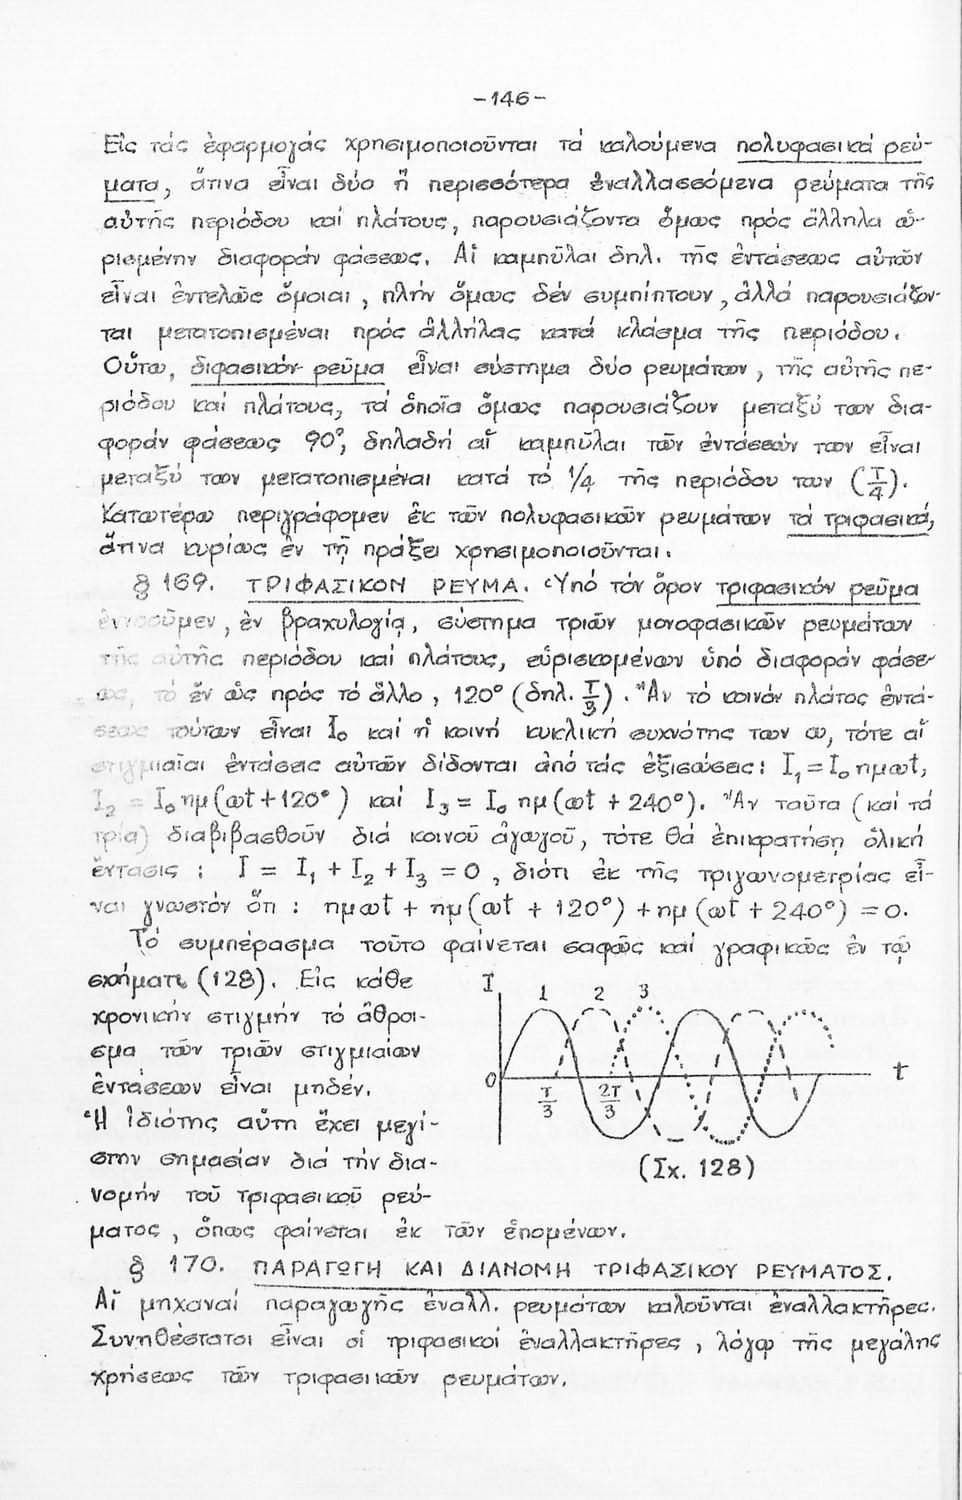 -146-
Εἰς τάς ἐφαρμογάς χρησιμοποιοῦνται τά καλούμενα πολυφασικά ρεύ-
ματα, ἅτινα εἶναι δύο ἤ περισσότερα ἐναλλασσόμενα ρεύματα τῆς
αὐτῆς περιόδου καί πλάτους, παρουσιάζοντα ὅμως πρός ἄλληλα ὡ-
ρισμένην διαφοράν φάσεως. Αἱ καμπῦλαι δηλ. τῆς ἐντάσεως αὐτῶν
εἶναι ἐντελῶς ὅμοιαι, πλήν ὅμως δέν συμπίπτουν, ἀλλά παρουσιάζον-
ται μετατοπισμέναι πρός ἀλλήλας κατά κλάσμα τῆς περιόδου.
Οὕτω, διφασικόν ρεῦμα εἶναι σύστημα δύο ρευμάτων, τῆς αὐτῆς πε-
ριόδου καί πλάτους, τά ὁποῖα ὅμως παρουσιάζουν μεταξύ των δια-
φοράν φάσεως 90°, δηλαδή αἱ καμπῦλαι τῶν ἐντάσεών των εἶναι
μεταξύ των μετατοπισμέναι κατά τό 1/4 τῆς περιόδου των (T/4).
Κατωτέρω περιγράφομεν ἐκ τῶν πολυφασικῶν ρευμάτων τά τριφασικά,
ἅτινα κυρίως ἐν τῇ πράξει χρησιμοποιοῦνται.
§ 169. ΤΡΙΦΑΣΙΚΟΝ ΡΕΥΜΑ. Ὑπό τόν ὅρον τριφασικόν ρεῦμα
ἐννοοῦμεν, ἐν βραχυλογίᾳ, σύστημα τριῶν μονοφασικῶν ρευμάτων
τῆς αὐτῆς περιόδου καί πλάτους, εὑρισκομένων ὑπό διαφοράν φάσε-
ως, τό ἕν ὡς πρός τό ἄλλο, 120° (δηλ. T/3). Ἄν τό κοινόν πλάτος ἐντά-
σεως τούτων εἶναι I₀ καί ἡ κοινή κυκλική συχνότης των ω, τότε αἱ
στιγμιαῖαι ἐντάσεις αὐτῶν δίδονται ἀπό τάς ἐξισώσεις: I₁ = I₀ ημωt,
I₂ = I₀ ημ(ωt + 120°) καί I₃ = I₀ ημ(ωt + 240°). Ἄν ταῦτα (καί τά
τρία) διαβιβασθοῦν διά κοινοῦ ἀγωγοῦ, τότε θά ἐπικρατήσῃ ὁλική
ἔντασις : I = I₁ + I₂ + I₃ = 0, διότι ἐκ τῆς τριγωνομετρίας εἶ-
ναι γνωστόν ὅτι : ημωt + ημ(ωt + 120°) + ημ(ωt + 240°) = 0.
Τό συμπέρασμα τοῦτο φαίνεται σαφῶς καί γραφικῶς ἐν τῷ
σχήματι (128). Εἰς κάθε
χρονικήν στιγμήν τό ἄθροι-
σμα τῶν τριῶν στιγμιαίων
ἐντάσεων εἶναι μηδέν.
Ἡ ἰδιότης αὕτη ἔχει μεγί-
στην σημασίαν διά τήν δια-
νομήν τοῦ τριφασικοῦ ρεύ-
ματος, ὅπως φαίνεται ἐκ τῶν ἑπομένων.
I
1 2 3
0 T/3 2T/3 t
(Σχ. 128)
§ 170. ΠΑΡΑΓΩΓΗ ΚΑΙ ΔΙΑΝΟΜΗ ΤΡΙΦΑΣΙΚΟΥ ΡΕΥΜΑΤΟΣ.
Αἱ μηχαναί παραγωγῆς ἐναλλ. ρευμάτων καλοῦνται ἐναλλακτῆρες.
Συνηθέστατοι εἶναι οἱ τριφασικοί ἐναλλακτῆρες, λόγῳ τῆς μεγάλης
χρήσεως τῶν τριφασικῶν ρευμάτων.